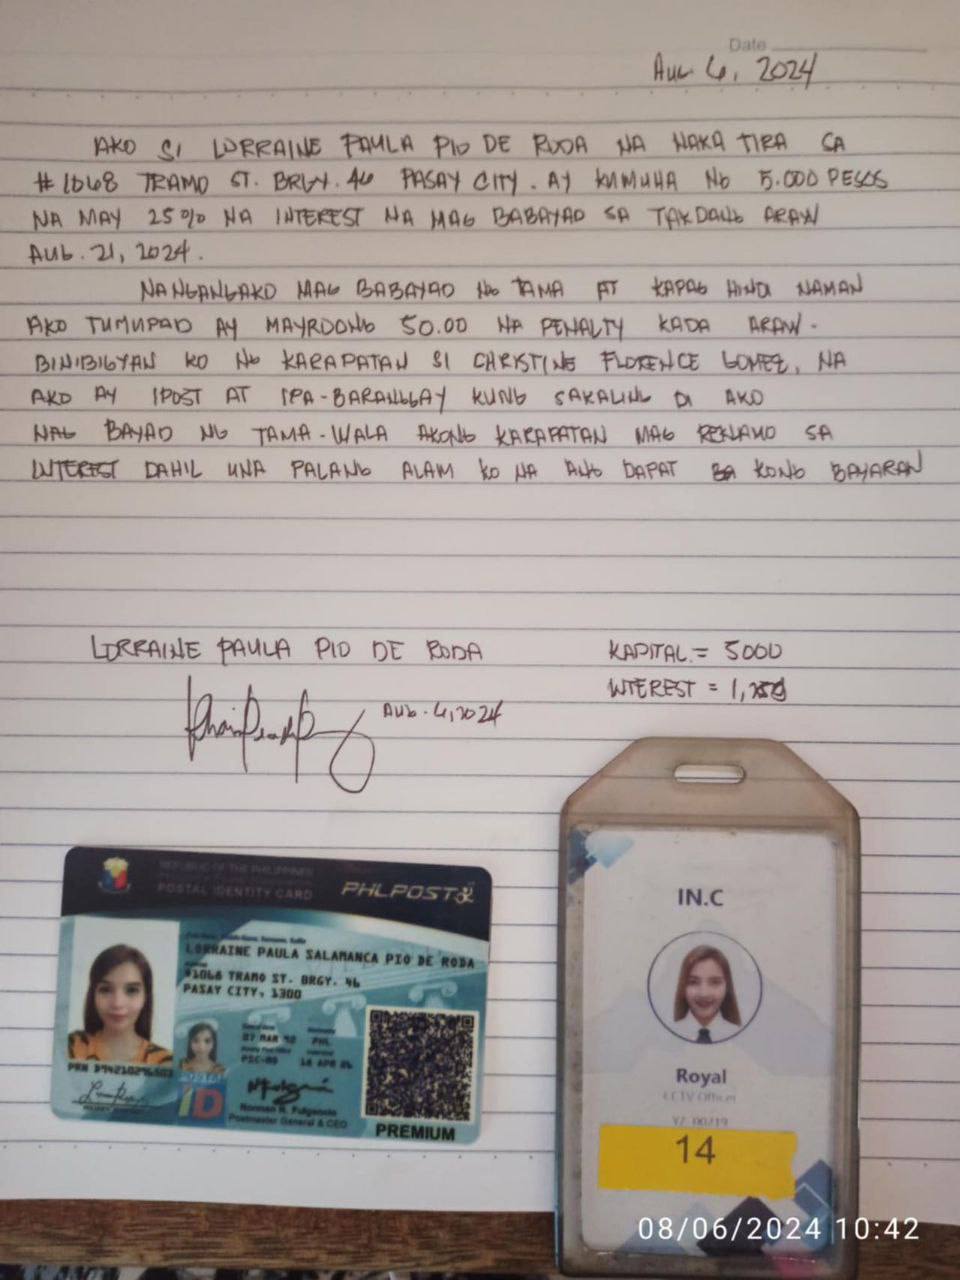 Date
AUG. 6, 2024
AKO SI LORRAINE PAULA PIO DE RODA NA NAKA TIRA SA
#1068 TRAMO ST. BRGY. 46 PASAY CITY. AY KUMUHA NG 5.000 PESOS
NA MAY 25% NA INTEREST NA MAG BABAYAD SA TAKDANG ARAW
AUG. 21, 2024.
NANGANGAKO MAG BABAYAD NG TAMA AT KAPAG HINDI NAMAN
AKO TUMUPAD AY MAYROONG 50.00 NA PENALTY KADA ARAW.
BINIBIGYAN KO NG KARAPATAN SI CHRISTINE FLORENCE GOMEZ, NA
AKO AY IPOST AT IPA-BARANGGAY KUNG SAKALING DI AKO
NAG BAYAD NG TAMA-WALA AKONG KARAPATAN MAG REKLAMO SA
INTEREST DAHIL UNA PALANG ALAM KO NA ANG DAPAT KONG BAYARAN
LORRAINE PAULA PIO DE RODA
KAPITAL = 5000
INTEREST = 1,250
AUG. 6, 2024
REPUBLIC OF THE PHILIPPINES
POSTAL IDENTITY CARD
PHLPOST
LORRAINE PAULA SALAMANCA PIO DE RODA
#1068 TRAMO ST. BRGY. 46
PASAY CITY, 1300
07 MAR 92 PHL
PRN
POSTAL
ID
Norman N. Fulgencio
Postmaster General & CEO
PREMIUM
IN.C
Royal
CCTV Officer
14
08/06/2024 10:42